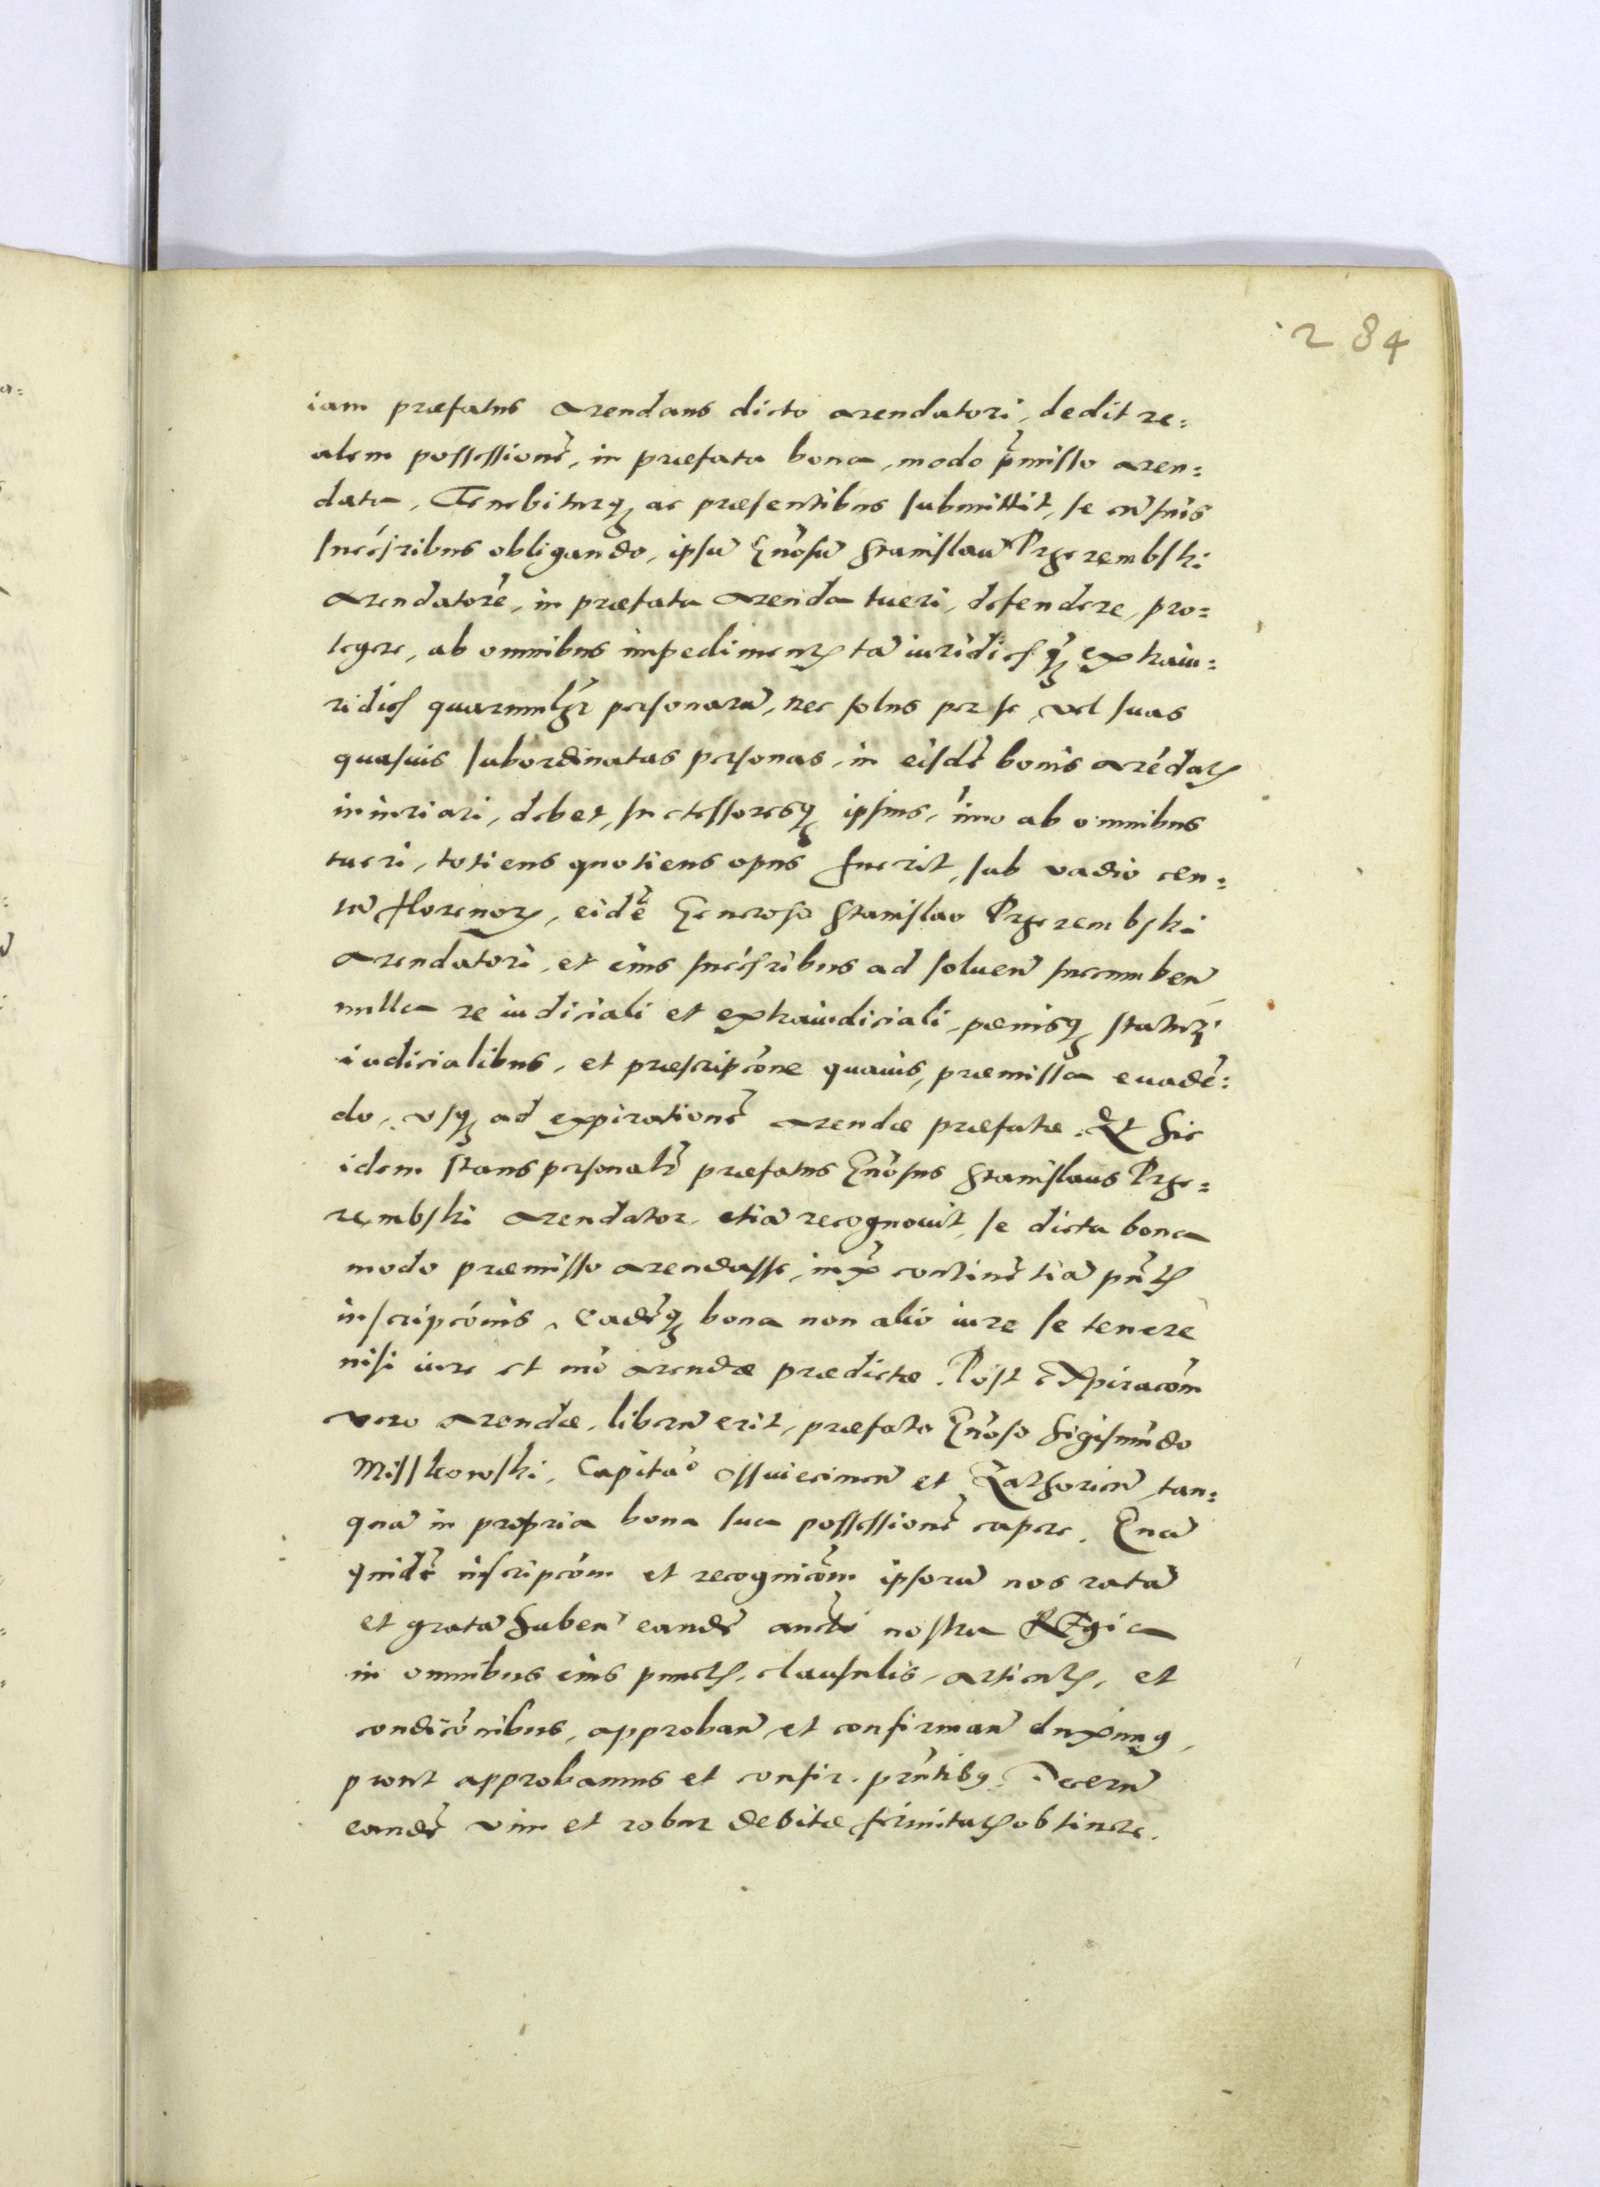 284
iam præfatus arendans dicto arendatori, dedit re=
alem possessionẽ, in præfata bona, modo p̃misso aren=
data, Tenebiturq₃ ac præsentibus submittit, se cũ suis
succ̃sribus obligando, ipsũ Gñosũ Stanislaũ Przerembski
arendatorẽ, in præfata arenda tueri, defendere, pro=
tegere, ab omnibus impedimentꝭ tã iuridicꝭ q₃ extraiu=
ridicꝭ quarumlibꝫ personarũ, nec solus per se, vel suas
quasuis subordinatas personas, in eisdẽ bonis arẽdatꝭ
iniuriari, debet, successoresq₃ ipsius, imo ab omnibus
tueri, totiens quotiens opus fuerit, sub vadio cen=
tũ florenorꝭ, eidẽ Generoso Stanislao Przerembski
arendatori, et eius succ̃sribus ad soluen̄ succumben̄
nulla re iudiciali et extraiudiciali, pœnisq₃ statutꝭ
iudicialibus, et præscripc̃one quauis, præmissa euadẽ=
do, vsq₃ ad expirationẽ arendæ præfatæ. Et hic
idem stans personalr̃ præfatus Gñosus Stanislaus Prze=
rembski arendator, etiã recognouit, se dicta bona
modo præmisso arendasse, iuxᵃ continẽtiã pñtꝭ
inscripc̃onis, Eadẽq₃ bona non alio iure se tenere
nisi iure et mõ arendæ prædictæ. Post Expirac̃om
vero arendæ, liberũ erit, præfato Gñoso Sigismũdo
Misskowski, Capit̃o Osswiecimeñ et Zathorieñ, tan=
quã in propria bona sua possessionẽ capere. Quã
quidẽ inscripc̃om et recognic̃om ipsorũ nos ratã
et gratã habeñ eandẽ aucte nostra REgia
in omnibus eius punctꝭ, clausulis, articulꝭ, et
condic̃onibus, approbañ et confirmañ duximꝰ,
prout approbamus et confir. pñtibꝰ. Decerñ
eandẽ vim et robur debitæ firmitatꝭ obtinere.